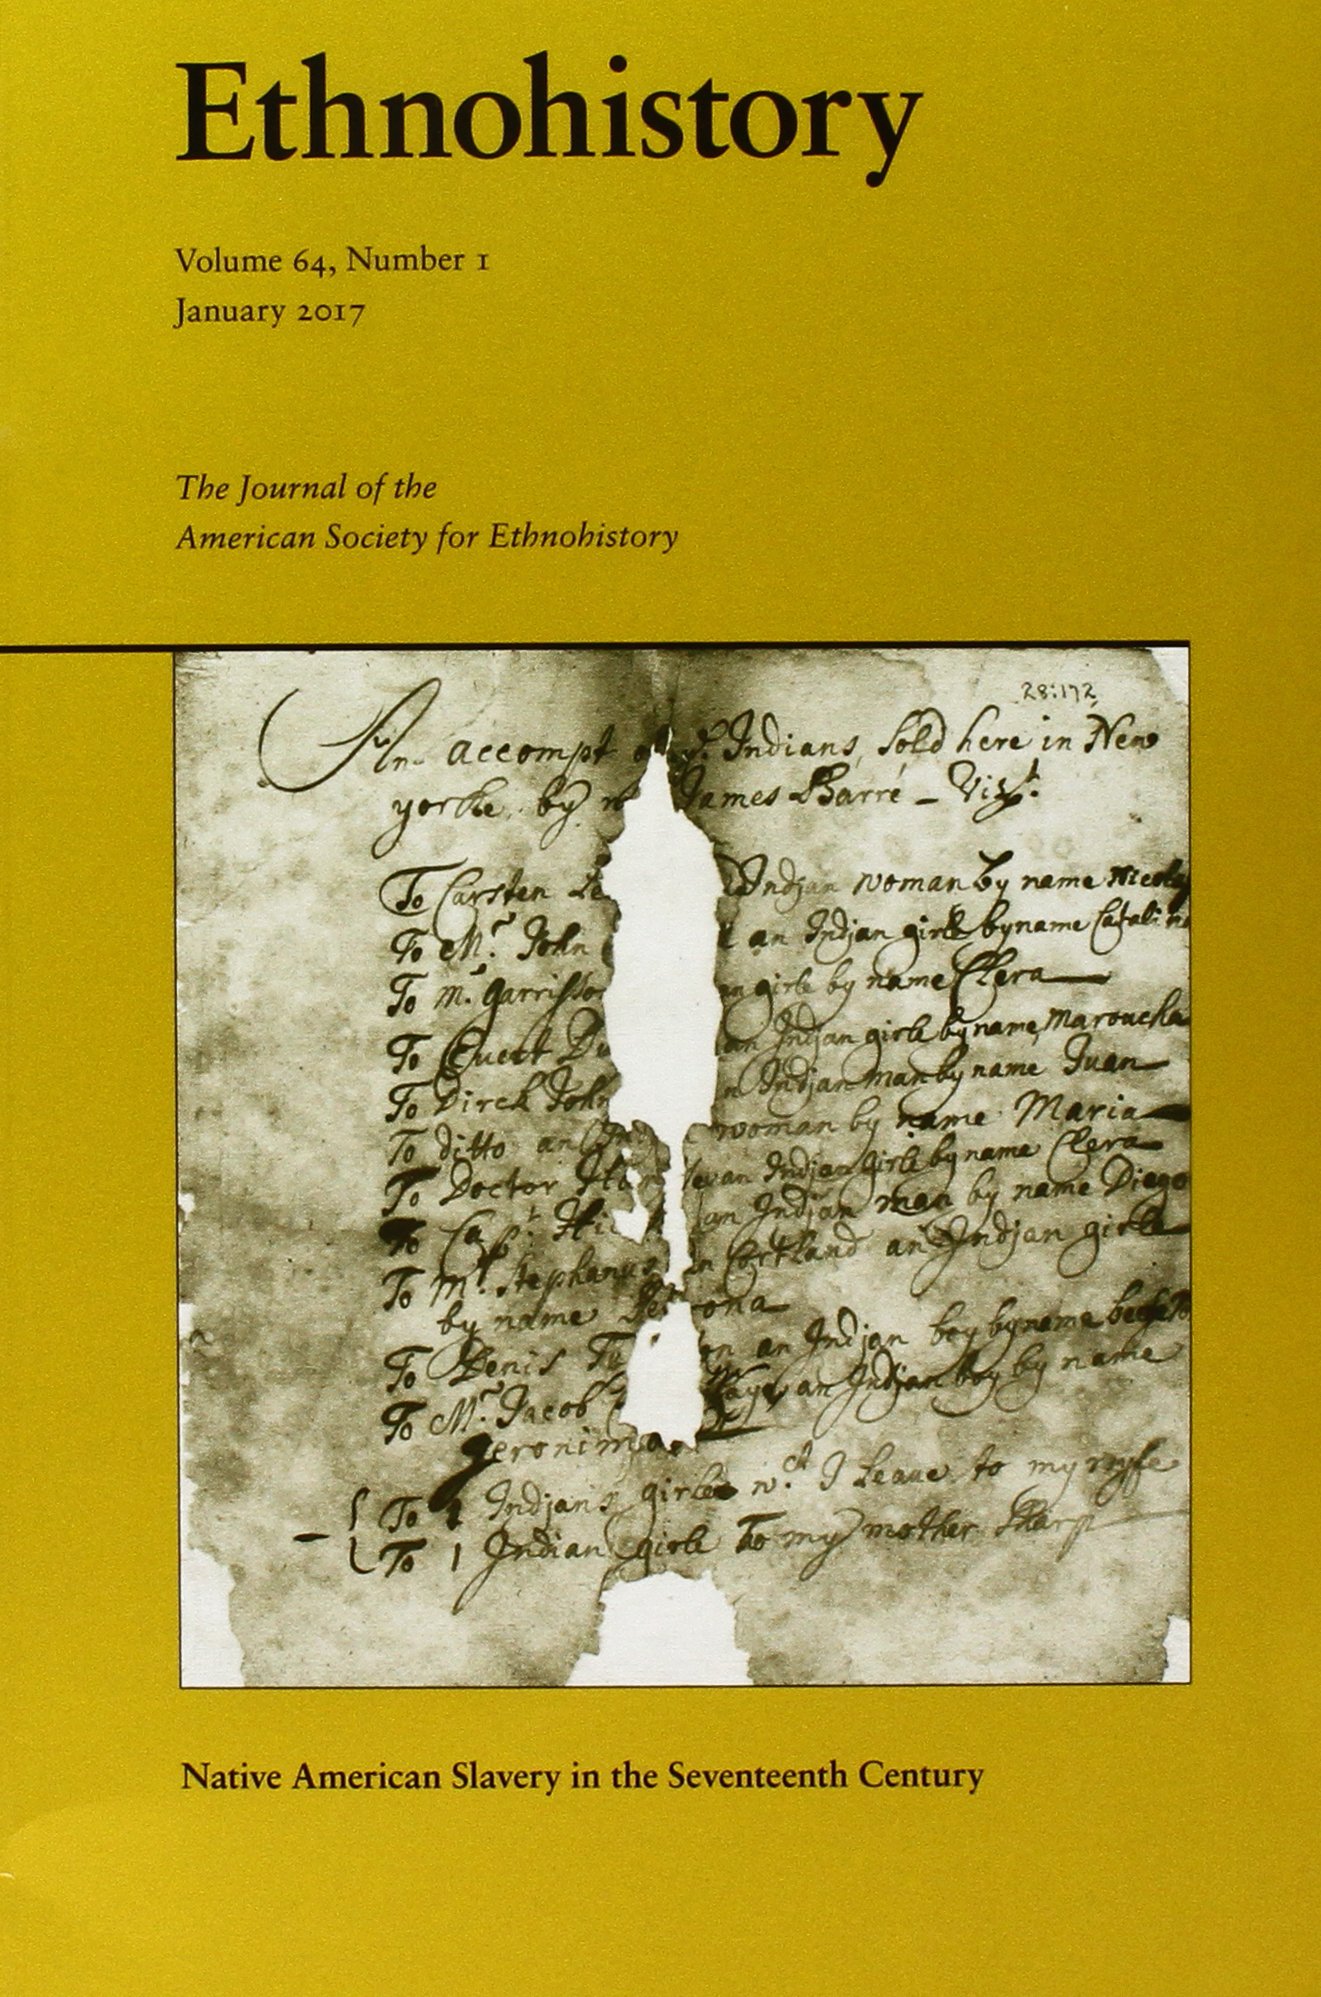 Ethnohistory
Volume 64, Number 1
January 2017
The Journal of the
American Society for Ethnohistory
28:172
An accompt ye Indians, sold here in New
yorke by James Barré – Vizt:
To Carsten Indjan woman by name
To Mr. John an Indjan girle by name
To Mr. Garrisson girle by name Clera
To Du an Indjan girle by name Maroucha
To Dirck John Indjan man by name Juan
To ditto an woman by name Maria
To Doctor an Indjan girle by name Clera
To Cap: an Indjan man by name Diego
To Mr. Stephanus Cortland an Indjan girle
by name ona
To Denis an Indjan boy by name
To Mr. Jacob an Indjan boy by name
Jeronimo
To Indjans girles wch I Leave to my wyfe
To 1 Indian girle To my mother Sharp
Native American Slavery in the Seventeenth Century